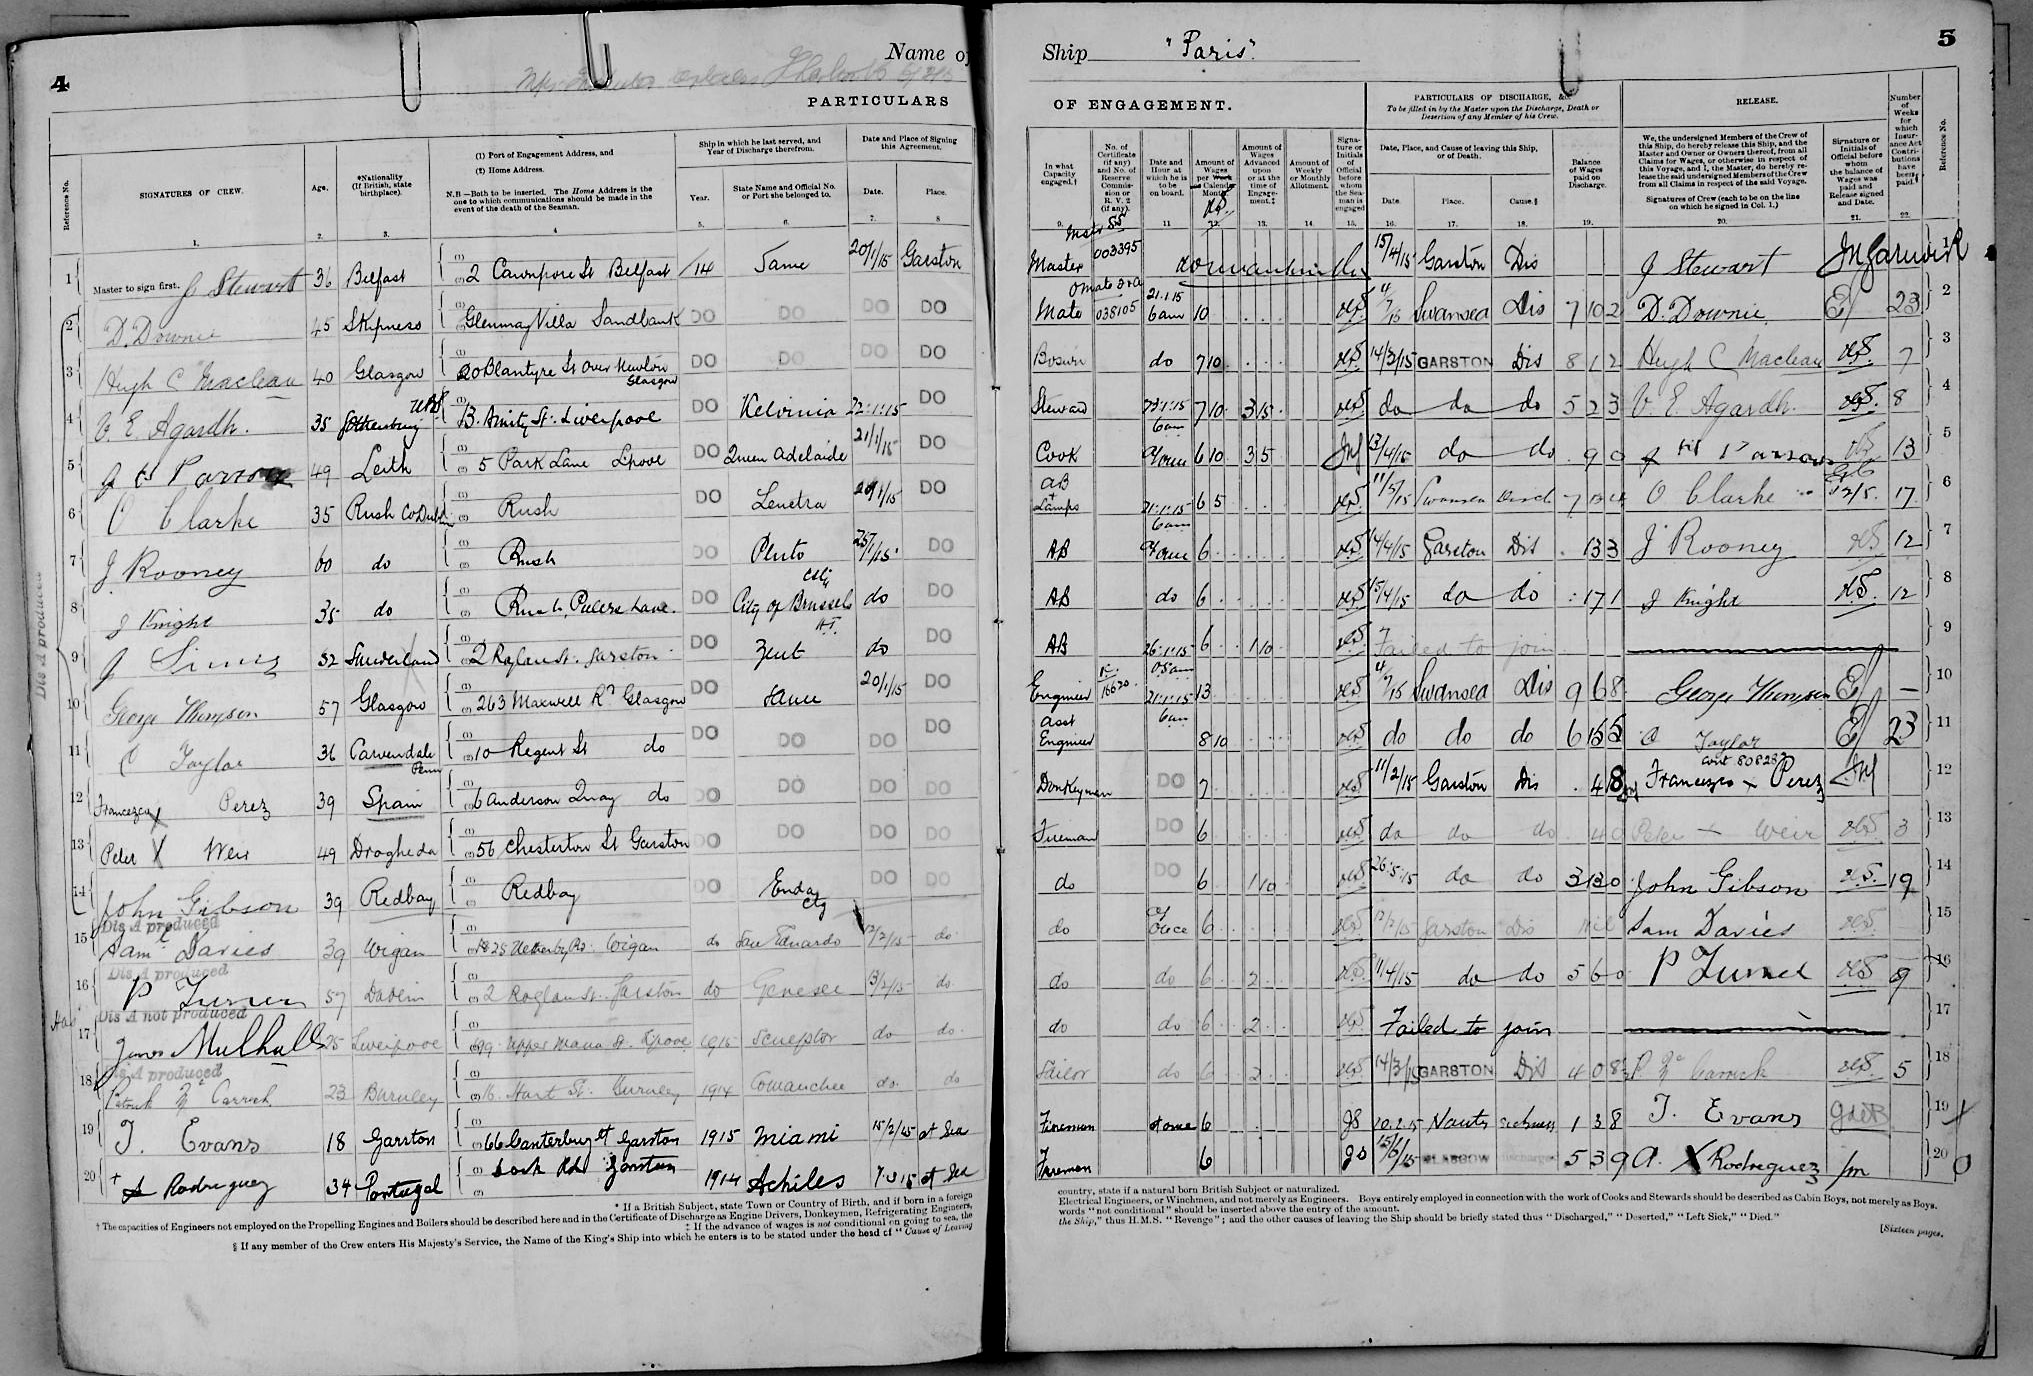 4
Name of
PARTICULARS
Reference No.
SIGNATURES OF CREW.
Age.
*Nationality
(If British, state
birthplace).
(1) Port of Engagement Address, and
(2) Home Address.
N.B.—Both to be inserted. The Home Address is the
one to which communications should be made in the
event of the death of the Seaman.
Ship in which he last served, and
Year of Discharge therefrom.
Year.
State Name and Official No.
or Port she belonged to.
Date and Place of Signing
this Agreement.
Date.
Place.
1. 2. 3. 4 5. 6. 7. 8
1 Master to sign first. J Stewart 36 Belfast 2 Cawnpore St Belfast /14 Same 20/1/15 Garston
2 D. Downie 45 Skipness Glenmay Villa Sandbank DO DO DO DO
3 Hugh C Maclean 40 Glasgow 20 Blantyre St Over Newton Glasgow DO DO DO DO
4 V. E. Agardh. 35 Gothenburg 13. Amity St. Liverpool DO Kelvinia 22.1.15 DO
5 49 Leith 5 Park Lane Lpool DO Queen Adelaide 21/1/15 DO
6 O Clarke 35 Rush Co Dublin Rush DO Lenetra 20/1/15 DO
7 J. Rooney 60 do Rush DO Pluto 25/1/15 DO
8 J Knight 35 do Rush, DO City of Brussels do DO
9 J 32 Sunderland 2 Raglan St. Garston DO Zent do DO
10 George Thompson 57 Glasgow 263 Maxwell Rd Glasgow DO Same 20/1/15 DO
11 C Taylor 36 10 Regent St do DO DO DO DO
12 X Perez 39 Spain 6 Anderson Quay do DO DO DO DO
13 Peter X Weir 49 Drogheda 56 Chesterton St Garston DO DO DO DO
14 John Gibson 39 Redbay Redbay DO DO DO
Dis A produced
15 Saml Davies 39 Wigan Wigan do San Eduardo 12/2/15 do
Dis A produced
16 P 57 2 Raglan St. Garston do Genesee 13/2/15 do
Dis A not produced
17 James Mulhall 25 Liverpool Lpool 1915 Sculptor do do
Dis A produced
18 23 Burnley 16 Hart St. Burnley 1914 Comanchee do. do
19 T. Evans 18 Garston 66 Canterbury St Garston 1915 Miami 15/2/15 at Sea
20 A Rodreguez 34 Portugal Dock Rd Garston 1914 Achiles at Sea
Dis A produced
* If a British Subject, state Town or Country of Birth, and if born in a foreign
† The capacities of Engineers not employed on the Propelling Engines and Boilers should be described here and in the Certificate of Discharge as Engine Drivers, Donkeymen, Refrigerating Engineers,
‡ If the advance of wages is not conditional on going to sea, the
§ If any member of the Crew enters His Majesty's Service, the Name of the King's Ship into which he enters is to be stated under the head of "Cause of Leaving
Ship "Paris". 5
OF ENGAGEMENT.
PARTICULARS OF DISCHARGE, &c.
To be filled in by the Master upon the Discharge, Death or
Desertion of any Member of his Crew.
RELEASE.
Number
of
Weeks
for
which
Insur-
ance Act
Contri-
butions
have
been
paid.
Reference No.
In what
Capacity
engaged.†
No. of
Certificate
(if any)
and No. of
Reserve
Commis-
sion or
R. V. 2
(if any).
Date and
Hour at
which he is
to be
on board.
Amount of
Wages
per Week
or Calendar
Month
Amount of
Wages
Advanced
upon
or at the
time of
Engage-
ment.‡
Amount of
Weekly
or Monthly
Allotment.
Signa-
ture or
Initials
of
Official
before
whom
the Sea-
man is
engaged
Date, Place, and Cause of leaving this Ship,
or of Death.
Date.
Place.
Cause.§
Balance
of Wages
paid on
Discharge.
We, the undersigned Members of the Crew of
this Ship, do hereby release this Ship, and the
Master and Owner or Owners thereof, from all
Claims for Wages, or otherwise in respect of
this Voyage, and I, the Master, do hereby re-
lease the said undersigned Members of the Crew
from all Claims in respect of the said Voyage.
Signatures of Crew (each to be on the line
on which he signed in Col. 1.)
Signature or
Initials of
Official before
whom
the balance of
Wages was
paid and
Release signed
and Date.
9. 11 12. 13. 14. 15. 16. 17. 18. 19. 20. 21. 22.
Master 003395 15/4/15 Garston Dis J Stewart 1
Mate 038105 21.1.15 6am 10 Swansea Dis 7 10 2 D. Downie 23 2
Bosun do 7 10 14/3/15 GARSTON Dis 8 1 2 Hugh C Maclean 7 3
Steward 23.1.15 6am 7 10 3 15 do do do 5 2 3 V. E. Agardh. 8 4
Cook 6 10 3 5 13/4/15 do do 9 0 13 5
AB + Lamps 21.1.15 6am 6 5 11/5/15 Swansea O Clarke 12/5. 17 6
AB 6 14/4/15 Garston Dis 13 3 J Rooney 12 7
AB do 6 15/4/15 do do 17 1 J Knight 12 8
AB 26.1.15 6 1 10 Failed to join 9
Engineer 21.1.15 6am 13 Swansea Dis 9 6 8 George Thompson 10
Asst Engineer 8 10 do do do C Taylor 23 11
Donkeyman DO 7 11/2/15 Garston Dis 4 8 X Perez 12
Fireman DO 6 do do do 4 0 Peter Weir 3 13
do DO 6 1 10 26.5.15 do do 3 13 0 John Gibson 19 14
do 6 Garston Dis Nil Sam Davies 15
do do 6 2 11/4/15 do do 5 6 0 P 9 16
do do 6 2 Failed to join 17
Sailor do 6 2 14/3/15 GARSTON Dis 4 0 8 5 18
Firemen 6 JS 20.2.15 Nantes Sickness 1 3 8 T. Evans 19
Firemen 6 JS 15/6/15 GLASGOW Discharged 5 3 9 A. X Rodreguez 20
country, state if a natural born British Subject or naturalized.
Electrical Engineers, or Winchmen, and not merely as Engineers. Boys entirely employed in connection with the work of Cooks and Stewards should be described as Cabin Boys, not merely as Boys.
words "not conditional" should be inserted above the entry of the amount.
the Ship," thus H.M.S. "Revenge"; and the other causes of leaving the Ship should be briefly stated thus "Discharged," "Deserted," "Left Sick," "Died."
[Sixteen pages.